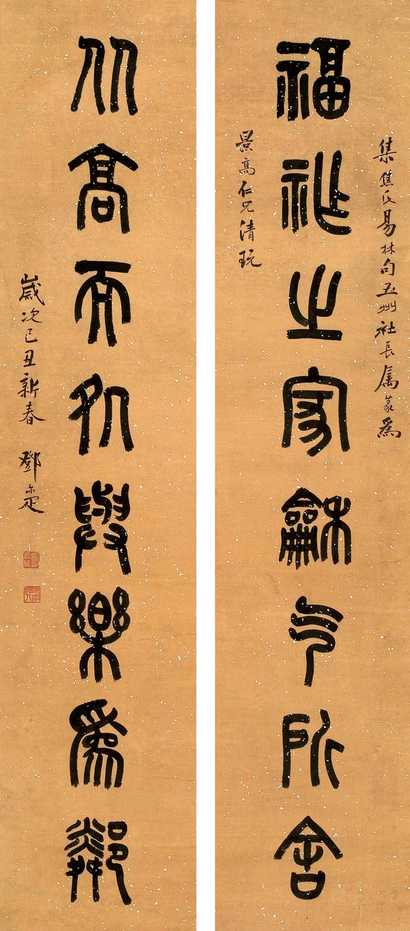 集焦氏易林句五州社長屬篆為
福祚之家龢气所舍
景高仁兄清玩
高而與樂為鄰
歲次己丑新春 鄧尔疋